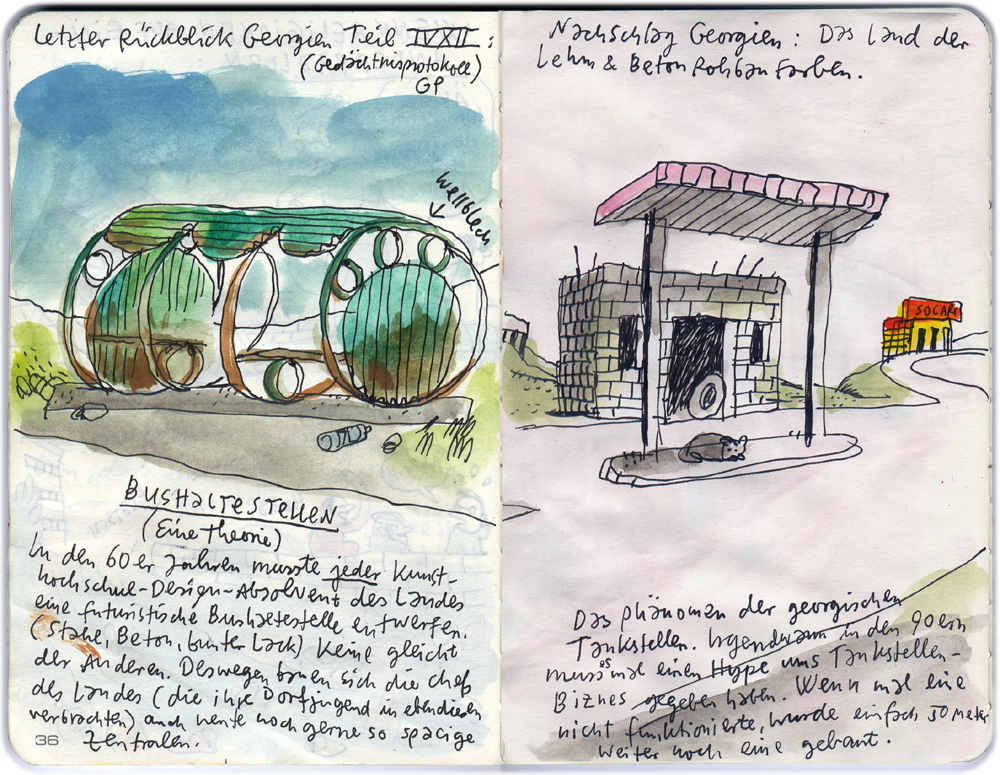 Letzter Rückblick Georgien Teil IVXII:
(Gedächtnisprotokoll)
GP
Wellblech
BUSHALTESTELLEN
(Eine Theorie)
In den 60er Jahren musste jeder Kunst-
hochschul-Design-Absolvent des Landes
eine futuristische Bushaltestelle entwerfen.
(Stahl, Beton, bunter Lack) Keine gleicht
der Anderen. Deswegen bauen sich die Chefs
des Landes (die ihre Dorfjugend in ebendiesen
verbrachten) auch heute noch gerne so spacige
Zentralen.
36
Nachschlag Georgien: Das Land der
Lehm & Beton Rohbau Farben.
SOCAR
Das Phänomen der georgischen
Tankstellen. Irgendwann in den 90ern
muss es mal einen Hype ums Tankstellen-
Biznes gegeben haben. Wenn mal eine
nicht funktionierte, wurde einfach 50 Meter
weiter noch eine gebaut.